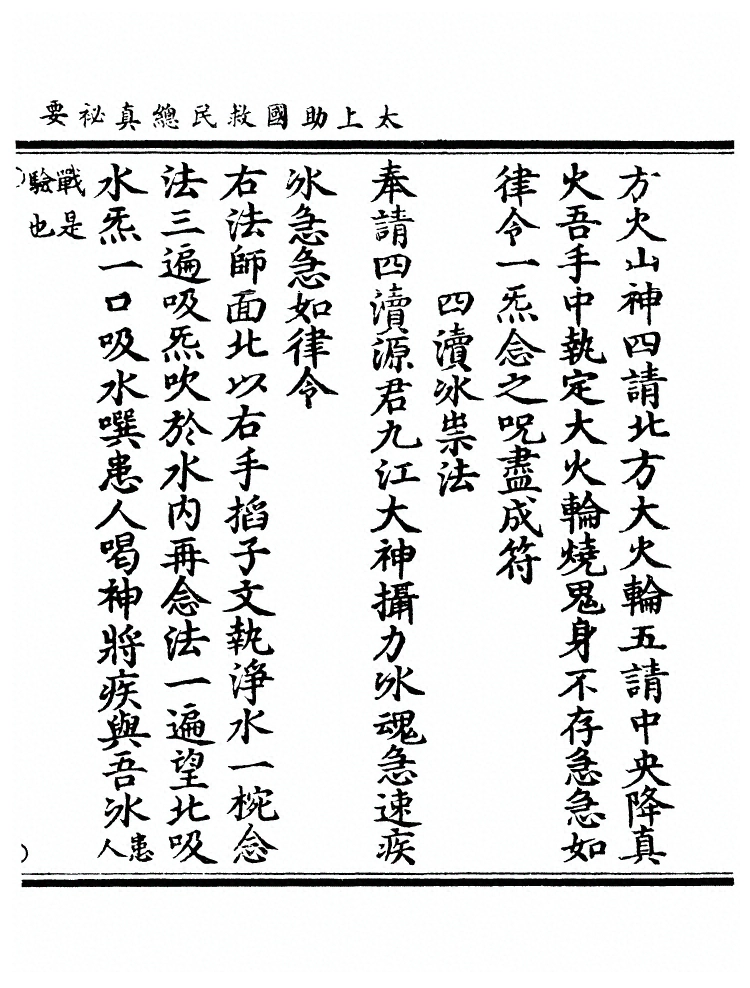 太上助國救民總真祕要
方火山神四請北方大火輪五請中央降真
火吾手中執定大火輪燒鬼身不存急急如
律令一炁念之呪盡成符
四瀆冰祟法
奉請四瀆源君九江大神攝力冰魂急速疾
冰急急如律令
右法師面北以右手搯子文執淨水一椀念
法三遍吸炁吹於水內再念法一遍望北吸
水炁一口吸水噀患人喝神將疾與吾冰患人
戰是驗也